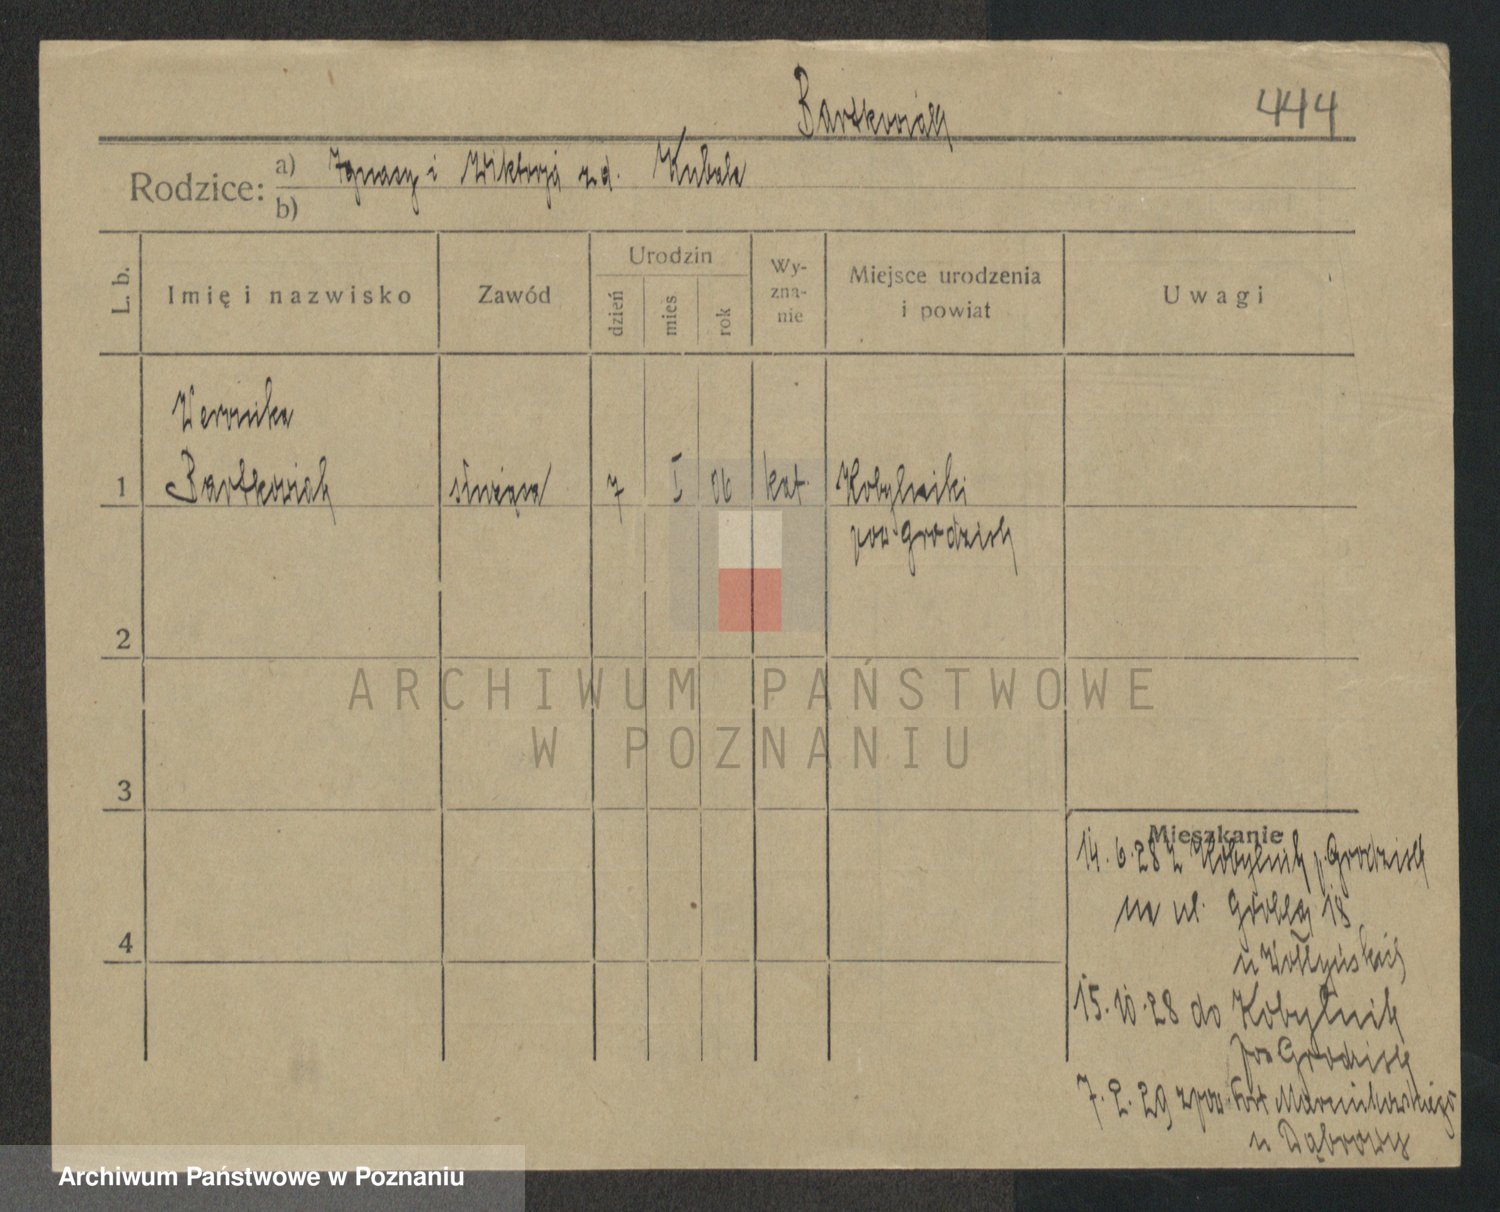 Bartkowiak
444
Rodzice: a) Ignacy i Wiktorja zd. Kubala
b)
L. b.
Imię i nazwisko
Zawód
Urodzin
dzień
mies
rok
Wy-
zna-
nie
Miejsce urodzenia
i powiat
Uwagi
Veronika
1 Bartkowiak służąca 7 I 06 kat. Kobylniki
pow Grodzisk
2
ARCHIWUM PAŃSTWOWE
W POZNANIU
3
Mieszkanie
14.6.28 z Kobylnik p. Grodzisk
na ul. Grobla 18
u Wołłyńskich
4
15.10.28 do Kobylnik
pow Grodzisk
7.2.29 z pow. Fort
u Dąbrowy
Archiwum Państwowe w Poznaniu